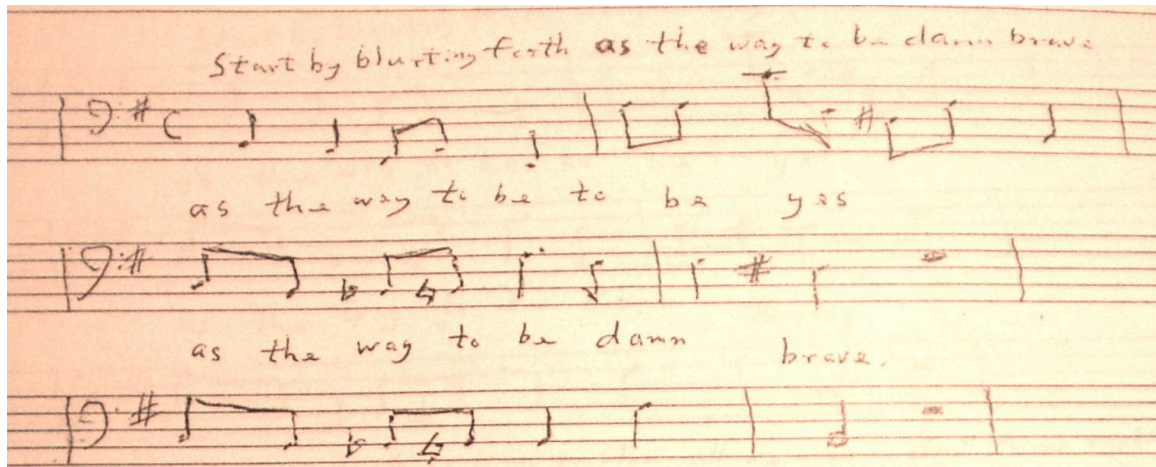 Start by blurting forth as the way to be damn brave
as the way to be to be yes
as the way to be damn brave.